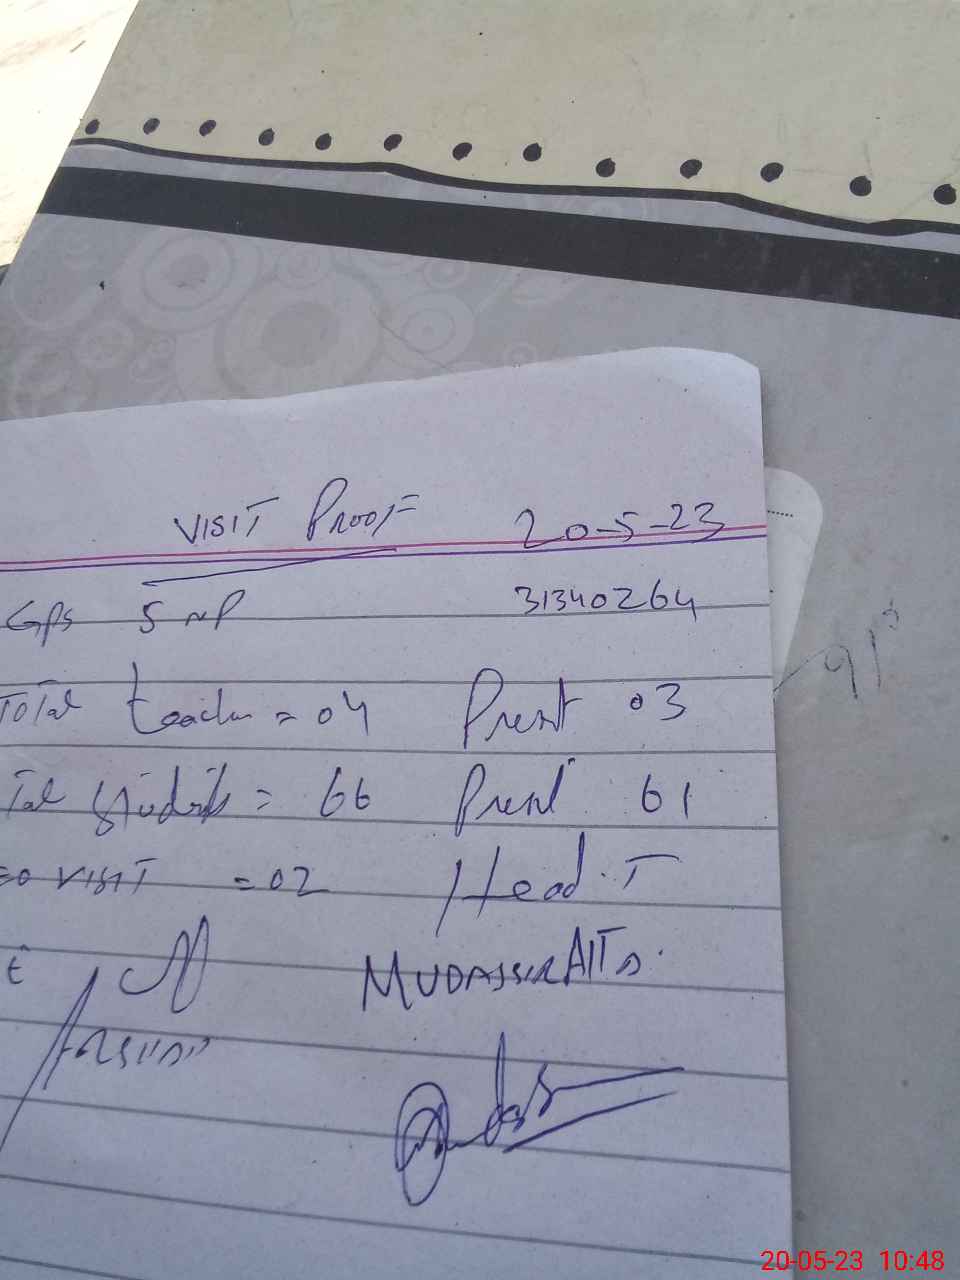 VISIT PROOF 20-5-23
GPS 5 NP 31340264
Total teacher = 04 Present 03
Tal Students = 66 Present 61
EO VISIT = 02 Head.T
MUDASSIR
91
20-05-23 10:48